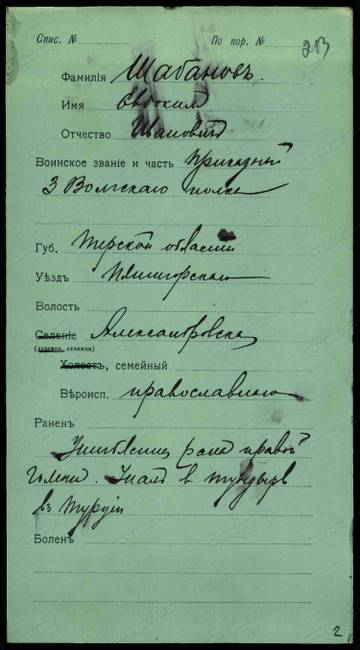 Спис. № По пор. № 213
Фамилія Шабановъ.
Имя Евдоким
Отчество
Воинское званіе и часть Приказный
3 Волгскаго полка
Губ. Терской области
Уѣздъ
Волость
Селеніе Александровская
(деревня, станица)
Холостъ, семейный
Вѣроисп. православнаго
Раненъ
рана правой
голени. Упалъ в
въ Турціи
Боленъ
2